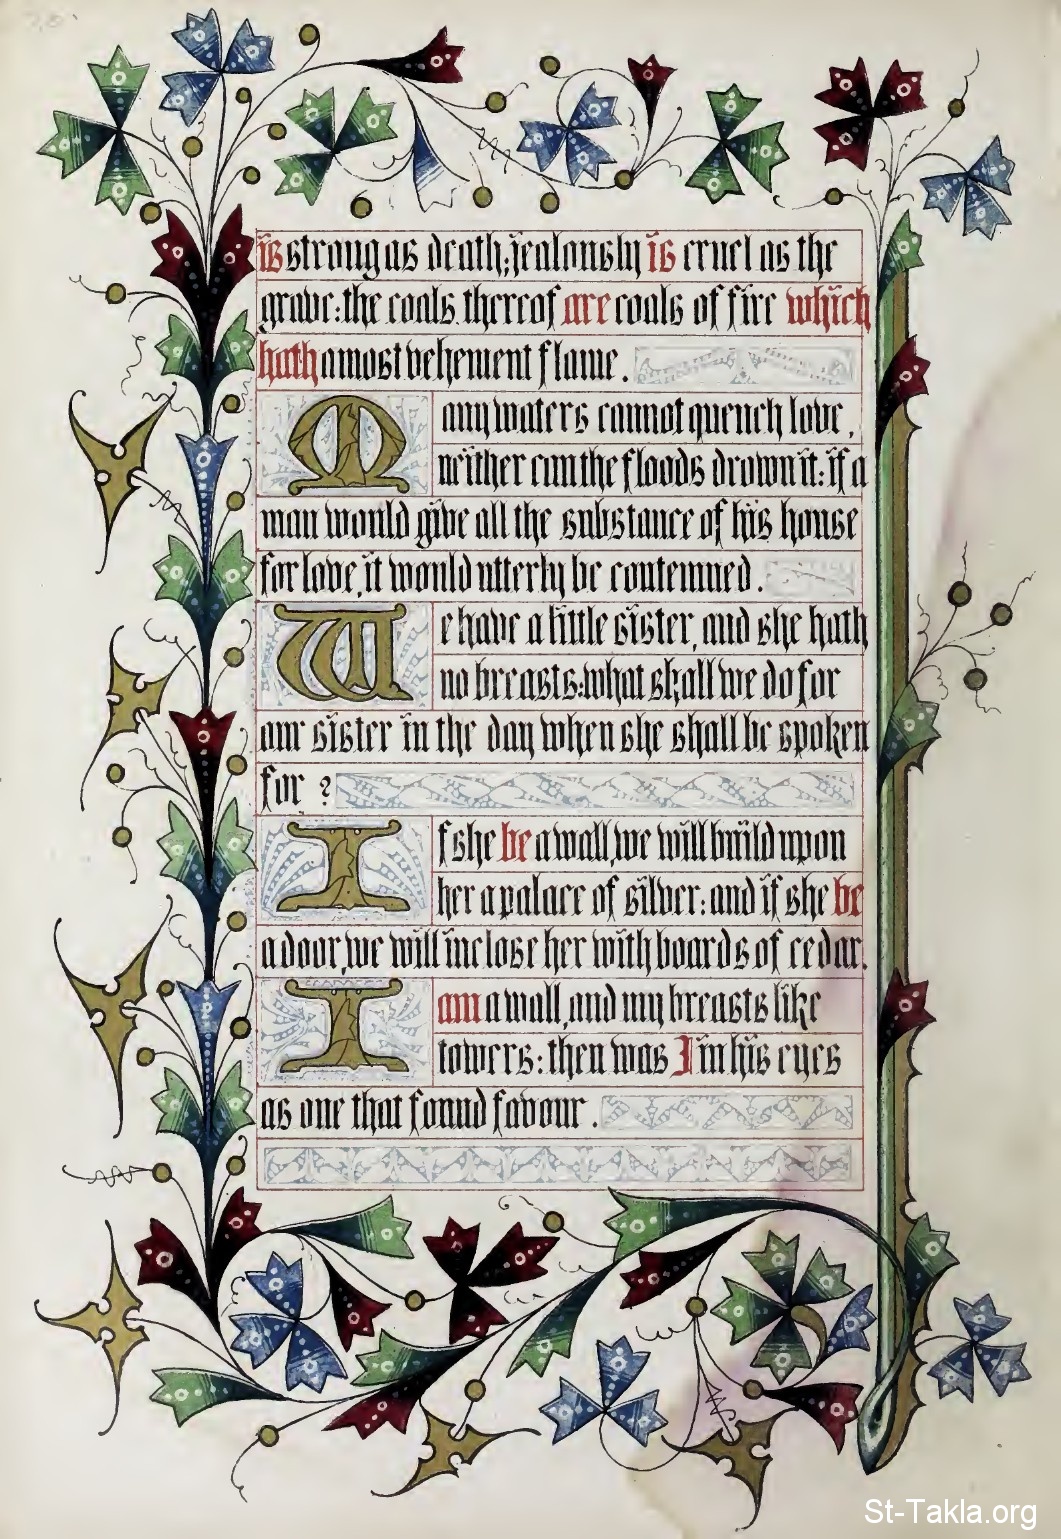 is strong as death; jealousy is cruel as the
grave: the coals thereof are coals of fire which
hath a most vehement flame.
Many waters cannot quench love,
neither can the floods drown it: if a
man would give all the substance of his house
for love, it would utterly be contemned.
We have a little sister, and she hath
no breasts: what shall we do for
our sister in the day when she shall be spoken
for ?
If she be a wall, we will build upon
her a palace of silver: and if she be
a door, we will inclose her with boards of cedar.
I am a wall, and my breasts like
towers: then was I in his eyes
as one that found favour.
St-Takla.org